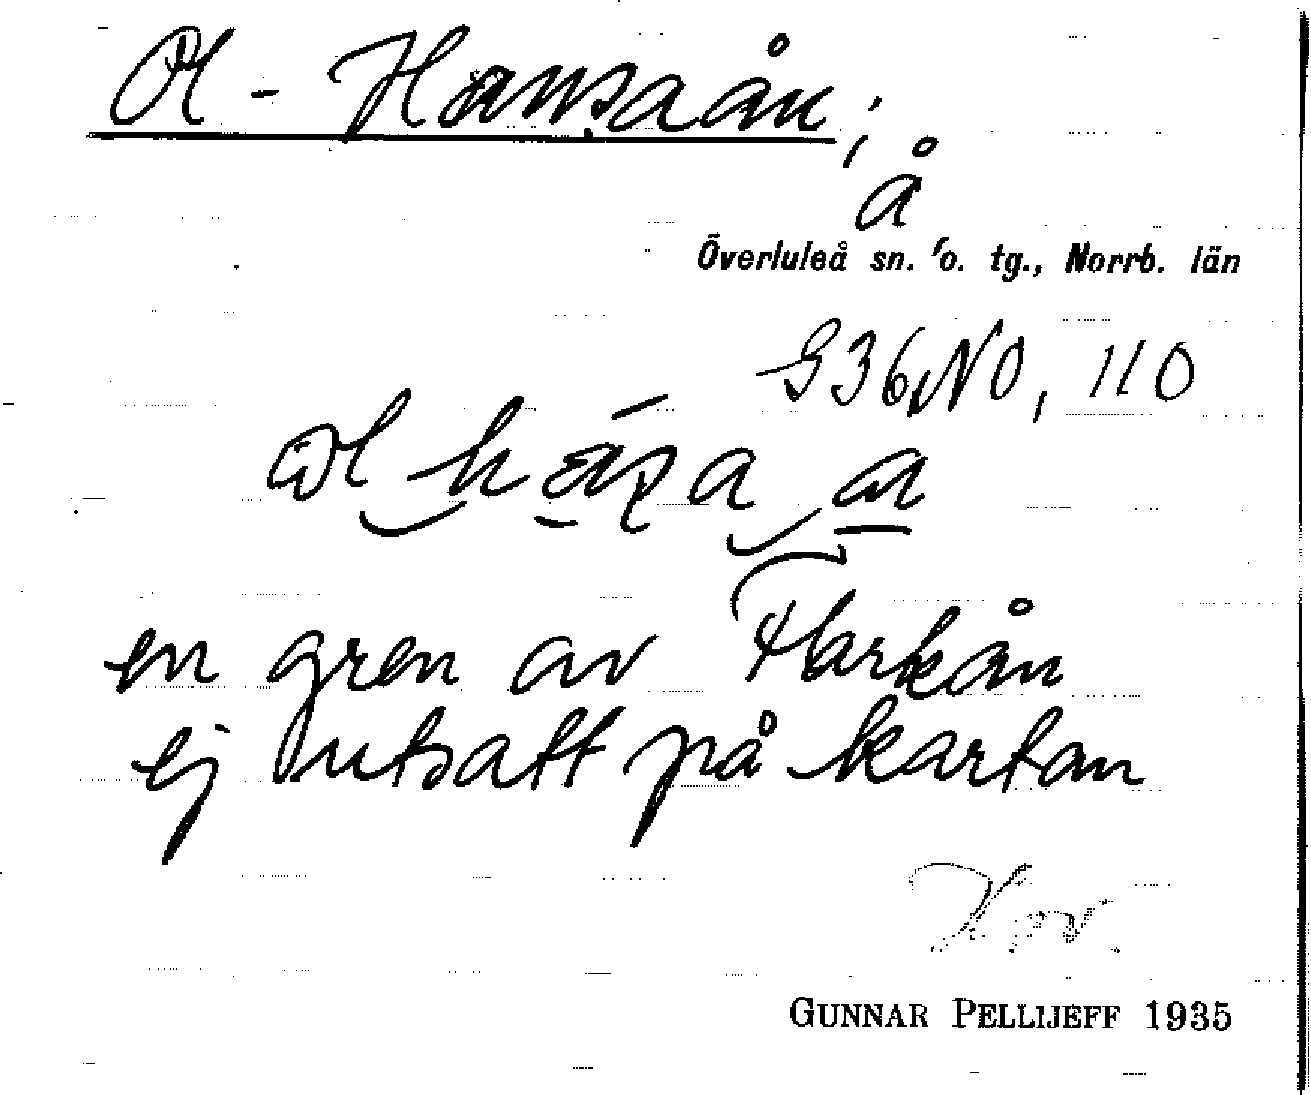 Ol-Hansaån;
å
Överluleå sn. o. tg., Norrb. län
G36NO, 110
en gren av Harkån
ej utsatt på kartan
GUNNAR PELLIJEFF 1935